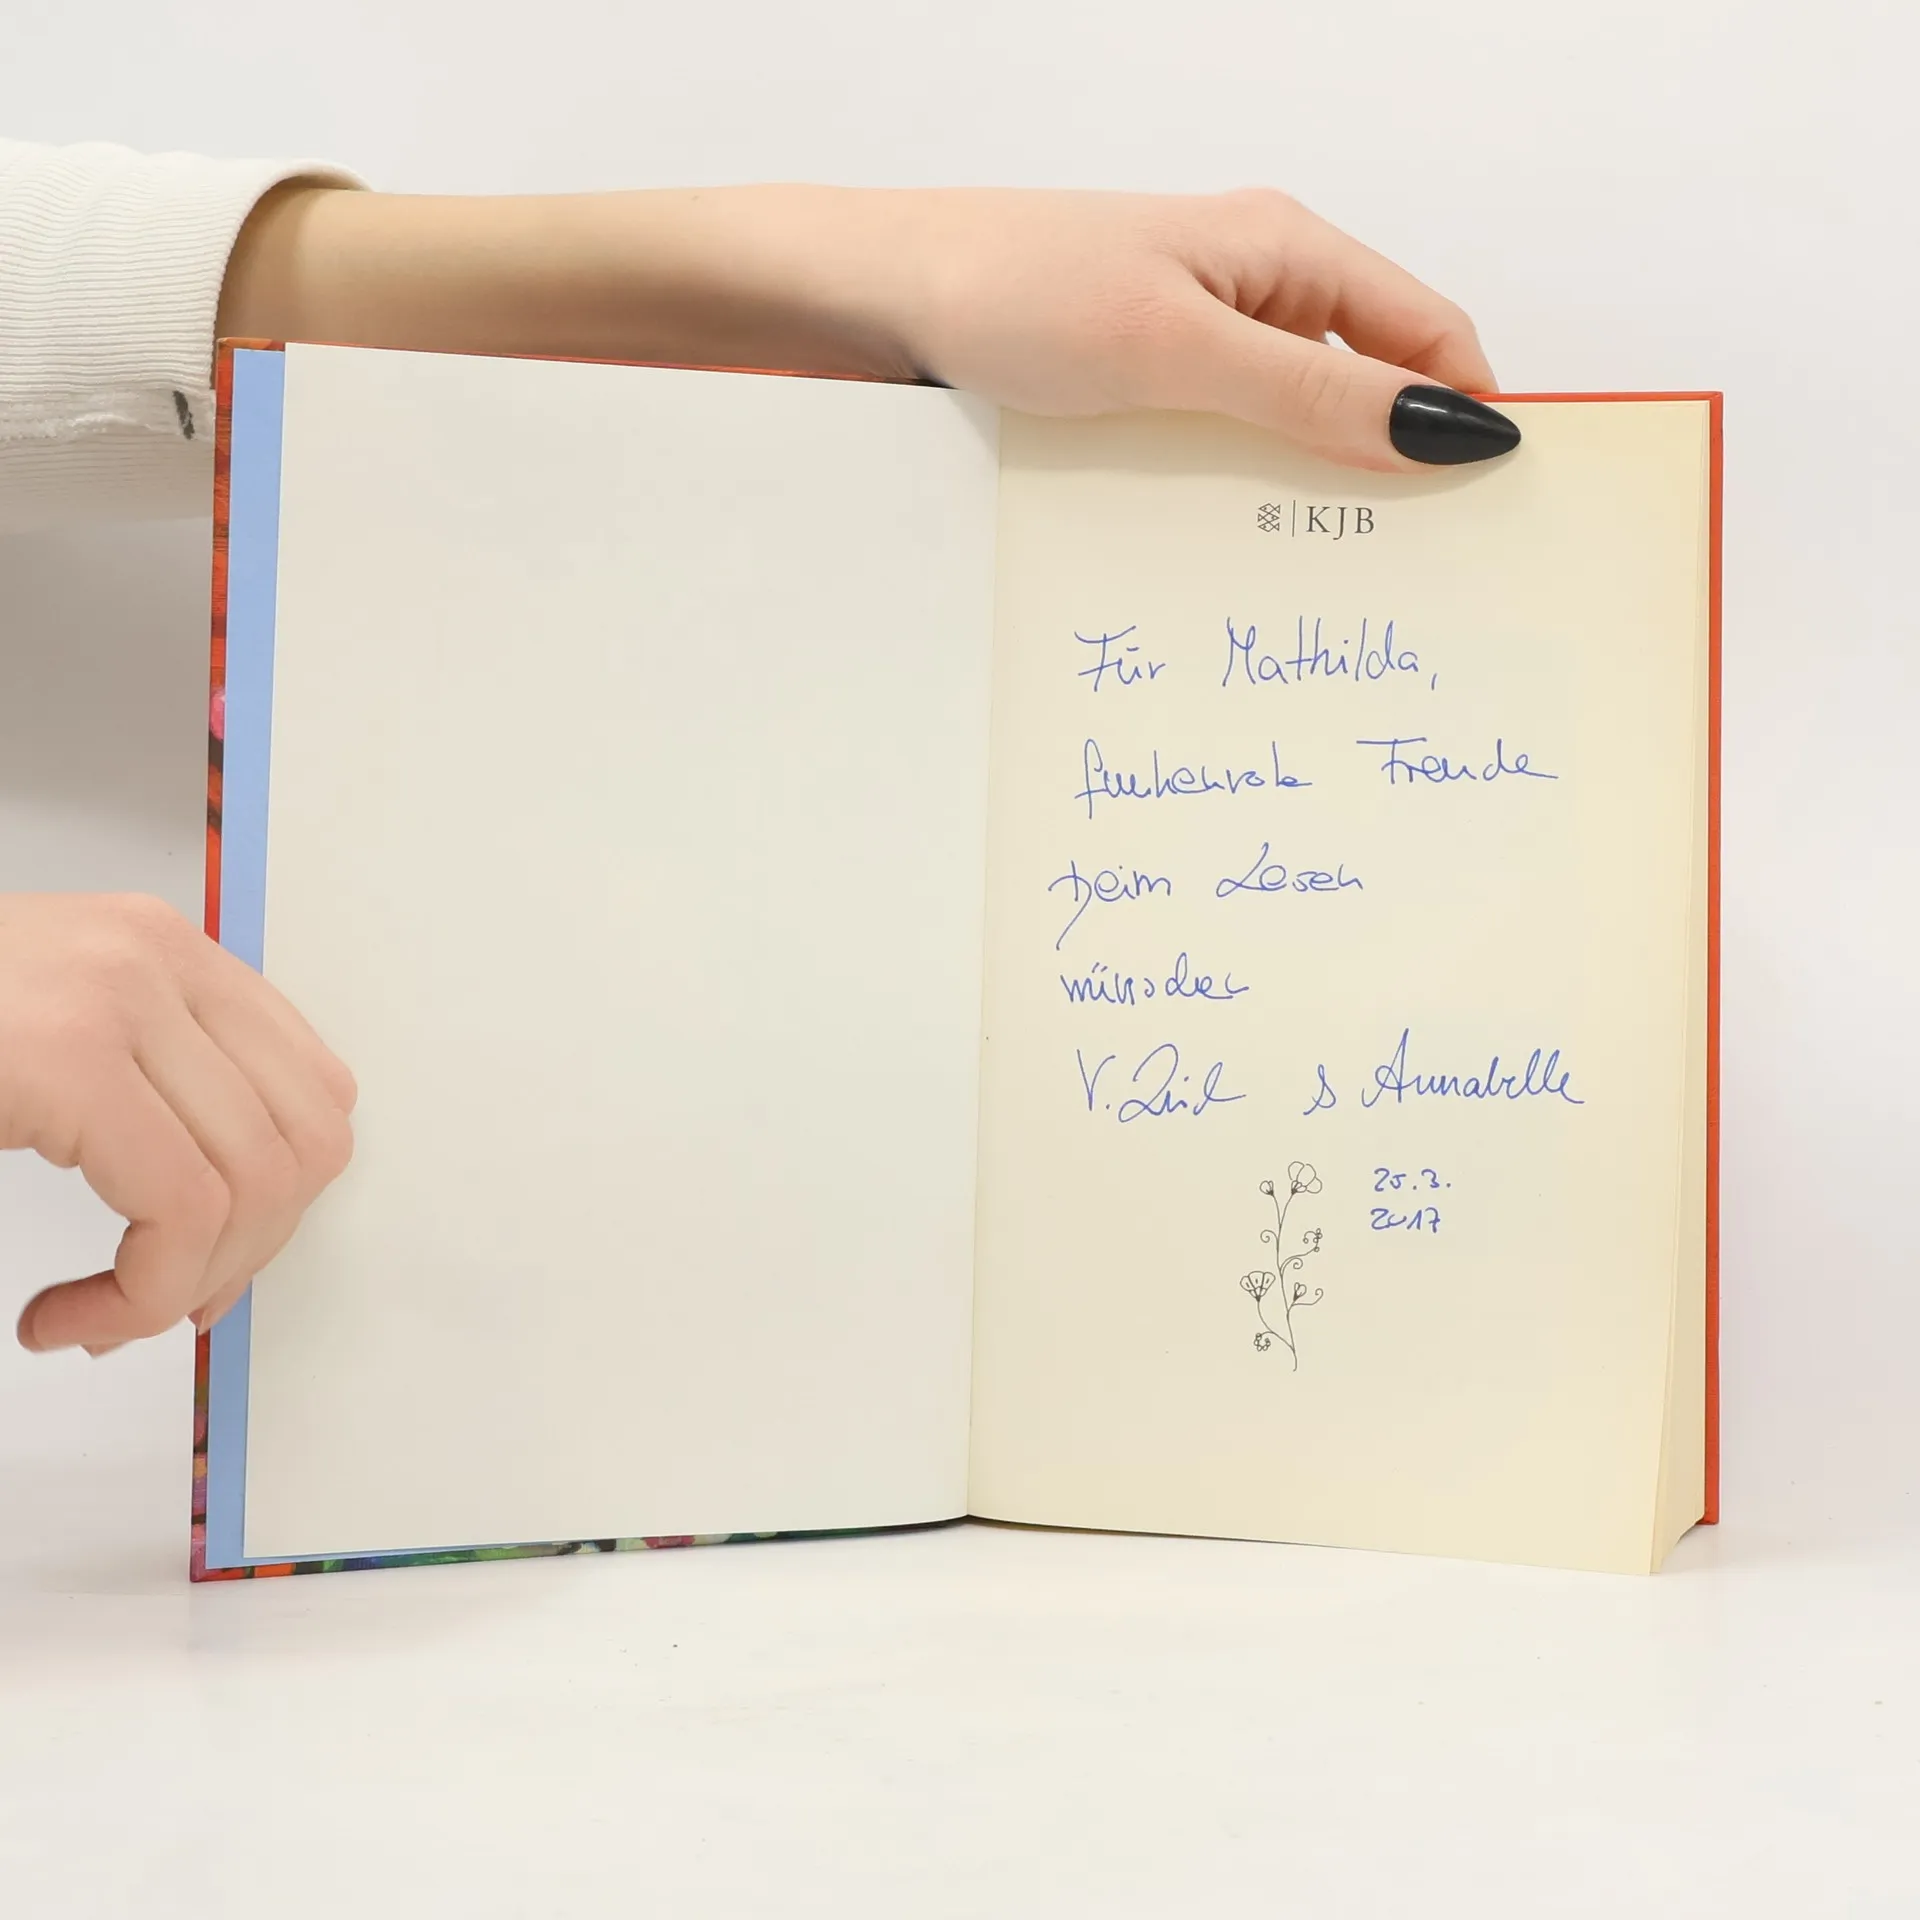 KJB
Für Mathilda,
funkenrote Freude
beim Lesen
wünschen
V. & Annabelle
25.3.
2017